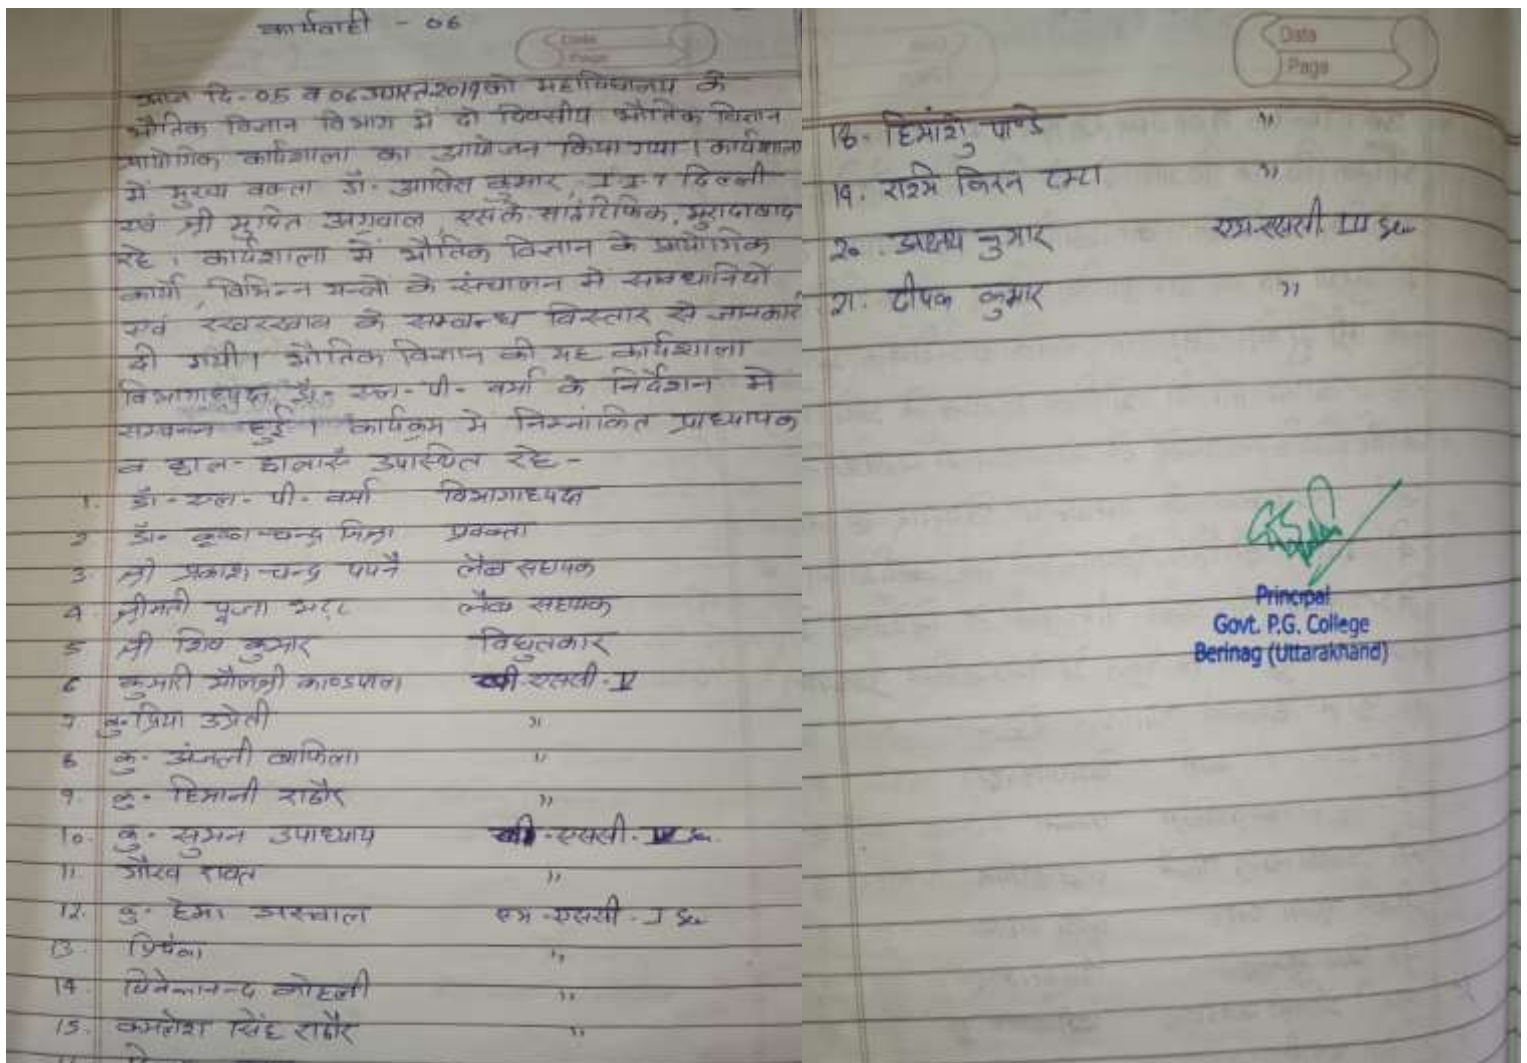 कार्यवाही - 06
Date
Page
आज दि- 05 व 06 अगस्त 2019 को महाविद्यालय के
भौतिक विज्ञान विभाग में दो दिवसीय भौतिक विज्ञान
प्रायोगिक कार्यशाला का आयोजन किया गया। कार्यशाला
में मुख्य वक्ता डॉ- आशिष कुमार, I I T दिल्ली
एवं श्री भूपित अग्रवाल, एसके साइंटिफिक, मुरादाबाद
रहे। कार्यशाला में भौतिक विज्ञान के प्रायोगिक
कार्यो, विभिन्न यन्त्रो के संचालन मे सावधानियों
एवं रखरखाव के सम्बन्ध विस्तार से जानकारी
दी गयी। भौतिक विज्ञान की यह कार्यशाला
विभागाध्यक्ष डॉ- एल- पी- वर्मा के निर्देशन मे
सम्पन्न हुई। कार्यक्रम मे निम्नांकित प्राध्यापक
व छात्र- छात्राएँ उपास्थित रहे -
1. डॉ- एल- पी- वर्मा विभागाध्यक्ष
2 डॉ- कृष्ण चन्द्र मिश्रा प्रवक्ता
3. श्री प्रकाश चन्द्र पपनै लैब सहायक
4. श्रीमती पूजा भट्ट लैब सहायक
5 श्री शिव कुमार विधुतकार
6 कुमारी काण्डपाल बी एससी- V
7. कु- प्रिया उप्रेती "
8 कु- अंजली बाफिला "
9. कु- हिमानी राठौर "
10. कु- सुमन उपाध्याय बी-एससी- Sem
11. गौरव रावत "
12. कु- हेमा एम-एससी- I Sem
13. प्रियंका "
14. विवेकानन्द कोहली "
15. कमलेश सिंह राठौर "
Date
Page
18- हिमांशु पाण्डे "
19. रश्मि किरन टम्टा "
20. अक्षय कुमार एम-एससी III Sem
21. दीपक कुमार "
Principal
Govt. P.G. College
Berinag (Uttarakhand)